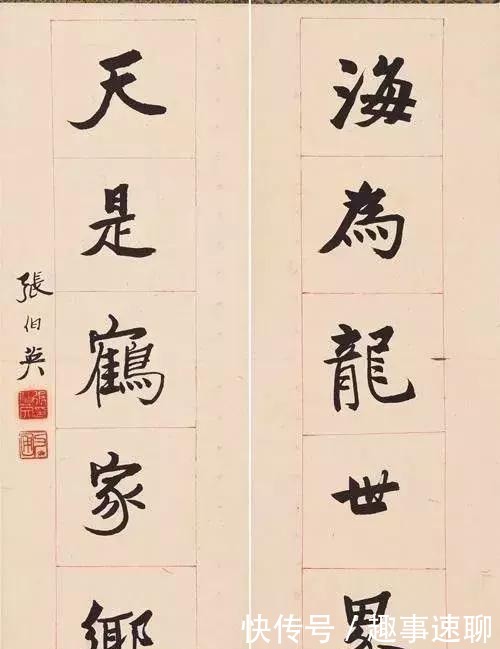 海為龍世界
天是鶴家鄉
張伯英
快传号 / 趣事速聊